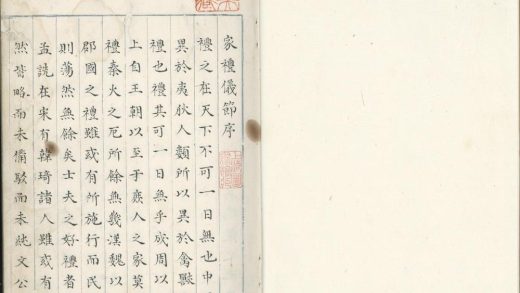 家禮儀節序
禮之在天下不可一日無也中
異於夷狄人類所以異於禽獸
禮也禮其可一日無乎成周以
上自王朝以至于庶人之家莫
禮秦火之厄所餘無幾漢魏以
郡國之禮雖或有所施行而民
則蕩然無餘矣士夫之好禮者
孟詵在宋有韓琦諸人雖或有
然皆略而未備駁而未純文公